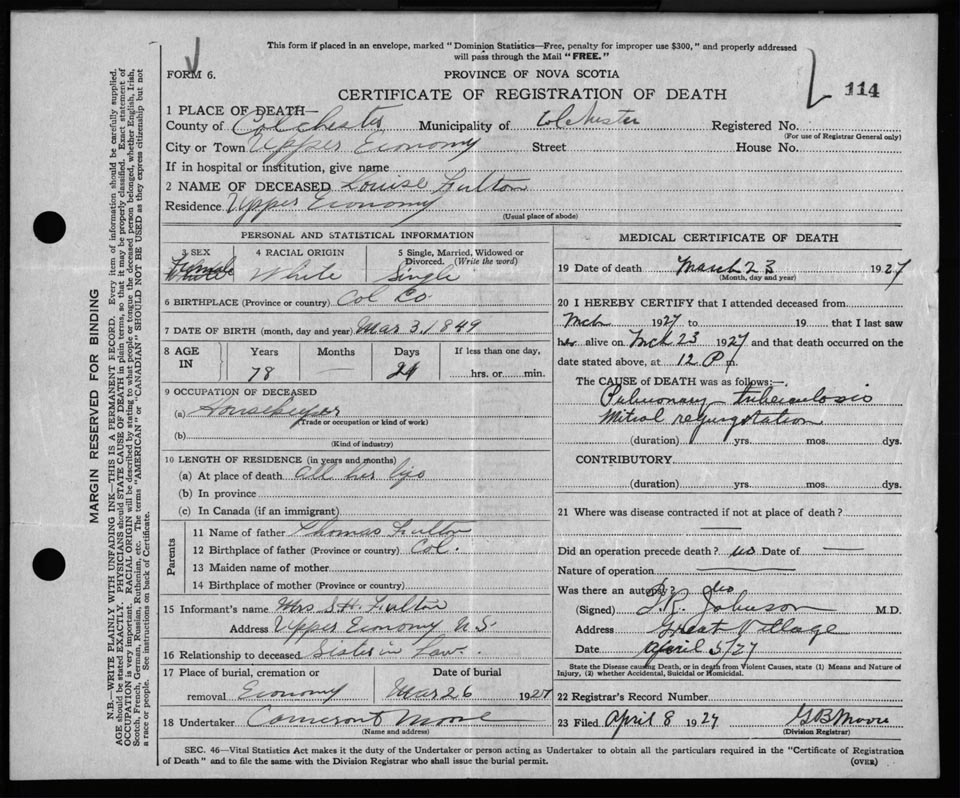 This form if placed in an envelope, marked "Dominion Statistics—Free, penalty for improper use $300," and properly addressed
will pass through the Mail "FREE."
FORM 6.
PROVINCE OF NOVA SCOTIA
114
CERTIFICATE OF REGISTRATION OF DEATH
1 PLACE OF DEATH—
County of Colchester Municipality of Colchester Registered No.
(For use of Registrar General only)
City or Town Upper Economy Street House No.
If in hospital or institution, give name
2 NAME OF DECEASED Louise Fulton
Residence Upper Economy
(Usual place of abode)
PERSONAL AND STATISTICAL INFORMATION
3 SEX 4 RACIAL ORIGIN 5 Single, Married, Widowed or
Divorced. (Write the word)
Female White Single
6 BIRTHPLACE (Province or country) Col Co
7 DATE OF BIRTH (month, day and year) Mar 3, 1849
8 AGE IN Years Months Days If less than one day,
78 — hrs. or min.
9 OCCUPATION OF DECEASED
(a) Housekeeper
(Trade or occupation or kind of work)
(b)
(Kind of industry)
10 LENGTH OF RESIDENCE (in years and months)
(a) At place of death All her life
(b) In province
(c) In Canada (if an immigrant)
Parents
11 Name of father Thomas Fulton
12 Birthplace of father (Province or country) Col.
13 Maiden name of mother
14 Birthplace of mother (Province or country)
15 Informant's name Mrs S H Fulton
Address Upper Economy N.S.
16 Relationship to deceased Sister in Law
17 Place of burial, cremation or Date of burial
removal Economy Mar 26 1927
18 Undertaker Moore
(Name and address)
MEDICAL CERTIFICATE OF DEATH
19 Date of death March 23 1927
(Month, day and year)
20 I HEREBY CERTIFY that I attended deceased from
Mch 1927 to 19 that I last saw
her alive on Mch 23 1927 and that death occurred on the
date stated above, at 12 P m.
The CAUSE of DEATH was as follows:—
Pulmonary tuberculosis
Mitral regurgitation
(duration) yrs. mos. dys.
CONTRIBUTORY
(duration) yrs. mos. dys.
21 Where was disease contracted if not at place of death?
Did an operation precede death? no Date of —
Nature of operation
Was there an autopsy? no
(Signed) Johnson M.D.
Address Great Village
Date April 5/27
State the Disease causing Death, or in death from Violent Causes, state (1) Means and Nature of
Injury, (2) whether Accidental, Suicidal or Homicidal.
22 Registrar's Record Number
23 Filed April 8 1927 G B Moore
(Division Registrar)
SEC. 46—Vital Statistics Act makes it the duty of the Undertaker or person acting as Undertaker to obtain all the particulars required in the "Certificate of Registration
of Death" and to file the same with the Division Registrar who shall issue the burial permit.
(OVER)
MARGIN RESERVED FOR BINDING
N.B.—WRITE PLAINLY WITH UNFADING INK—THIS IS A PERMANENT RECORD. Every item of information should be carefully supplied.
AGE should be stated EXACTLY. PHYSICIANS should STATE CAUSE OF DEATH in plain terms, so that it may be properly classified. Exact statement of
OCCUPATION is very important. RACIAL ORIGIN will be described by stating to what people or tongue the deceased person belonged, whether English, Irish,
Scotch, French, German, Russian, Ruthenian, etc. The terms "AMERICAN" or "CANADIAN" SHOULD NOT BE USED as they express citizenship but not
a race or people. See instructions on back of Certificate.